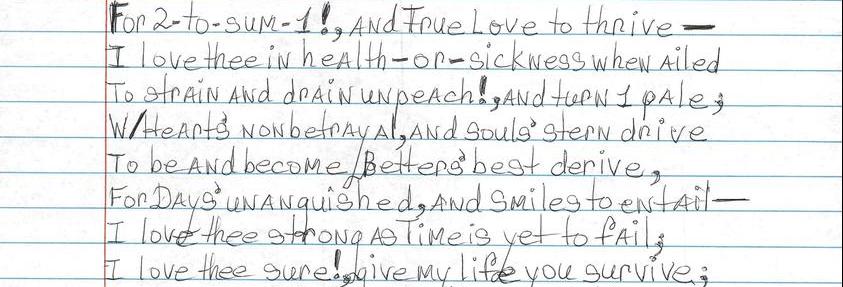 For 2-to-sum-1!, And True Love to thrive—
I love thee in health-or-sickness when Ailed
To strain and drain unpeach!, And turn 1 pale;
W/Hearts' nonbetrayal, And Souls' stern drive
To be And become Betters' best derive,
For Days' unanguished, And Smiles to entail—
I love thee strong As Time is yet to fail;
I love thee sure!, give my life you survive;